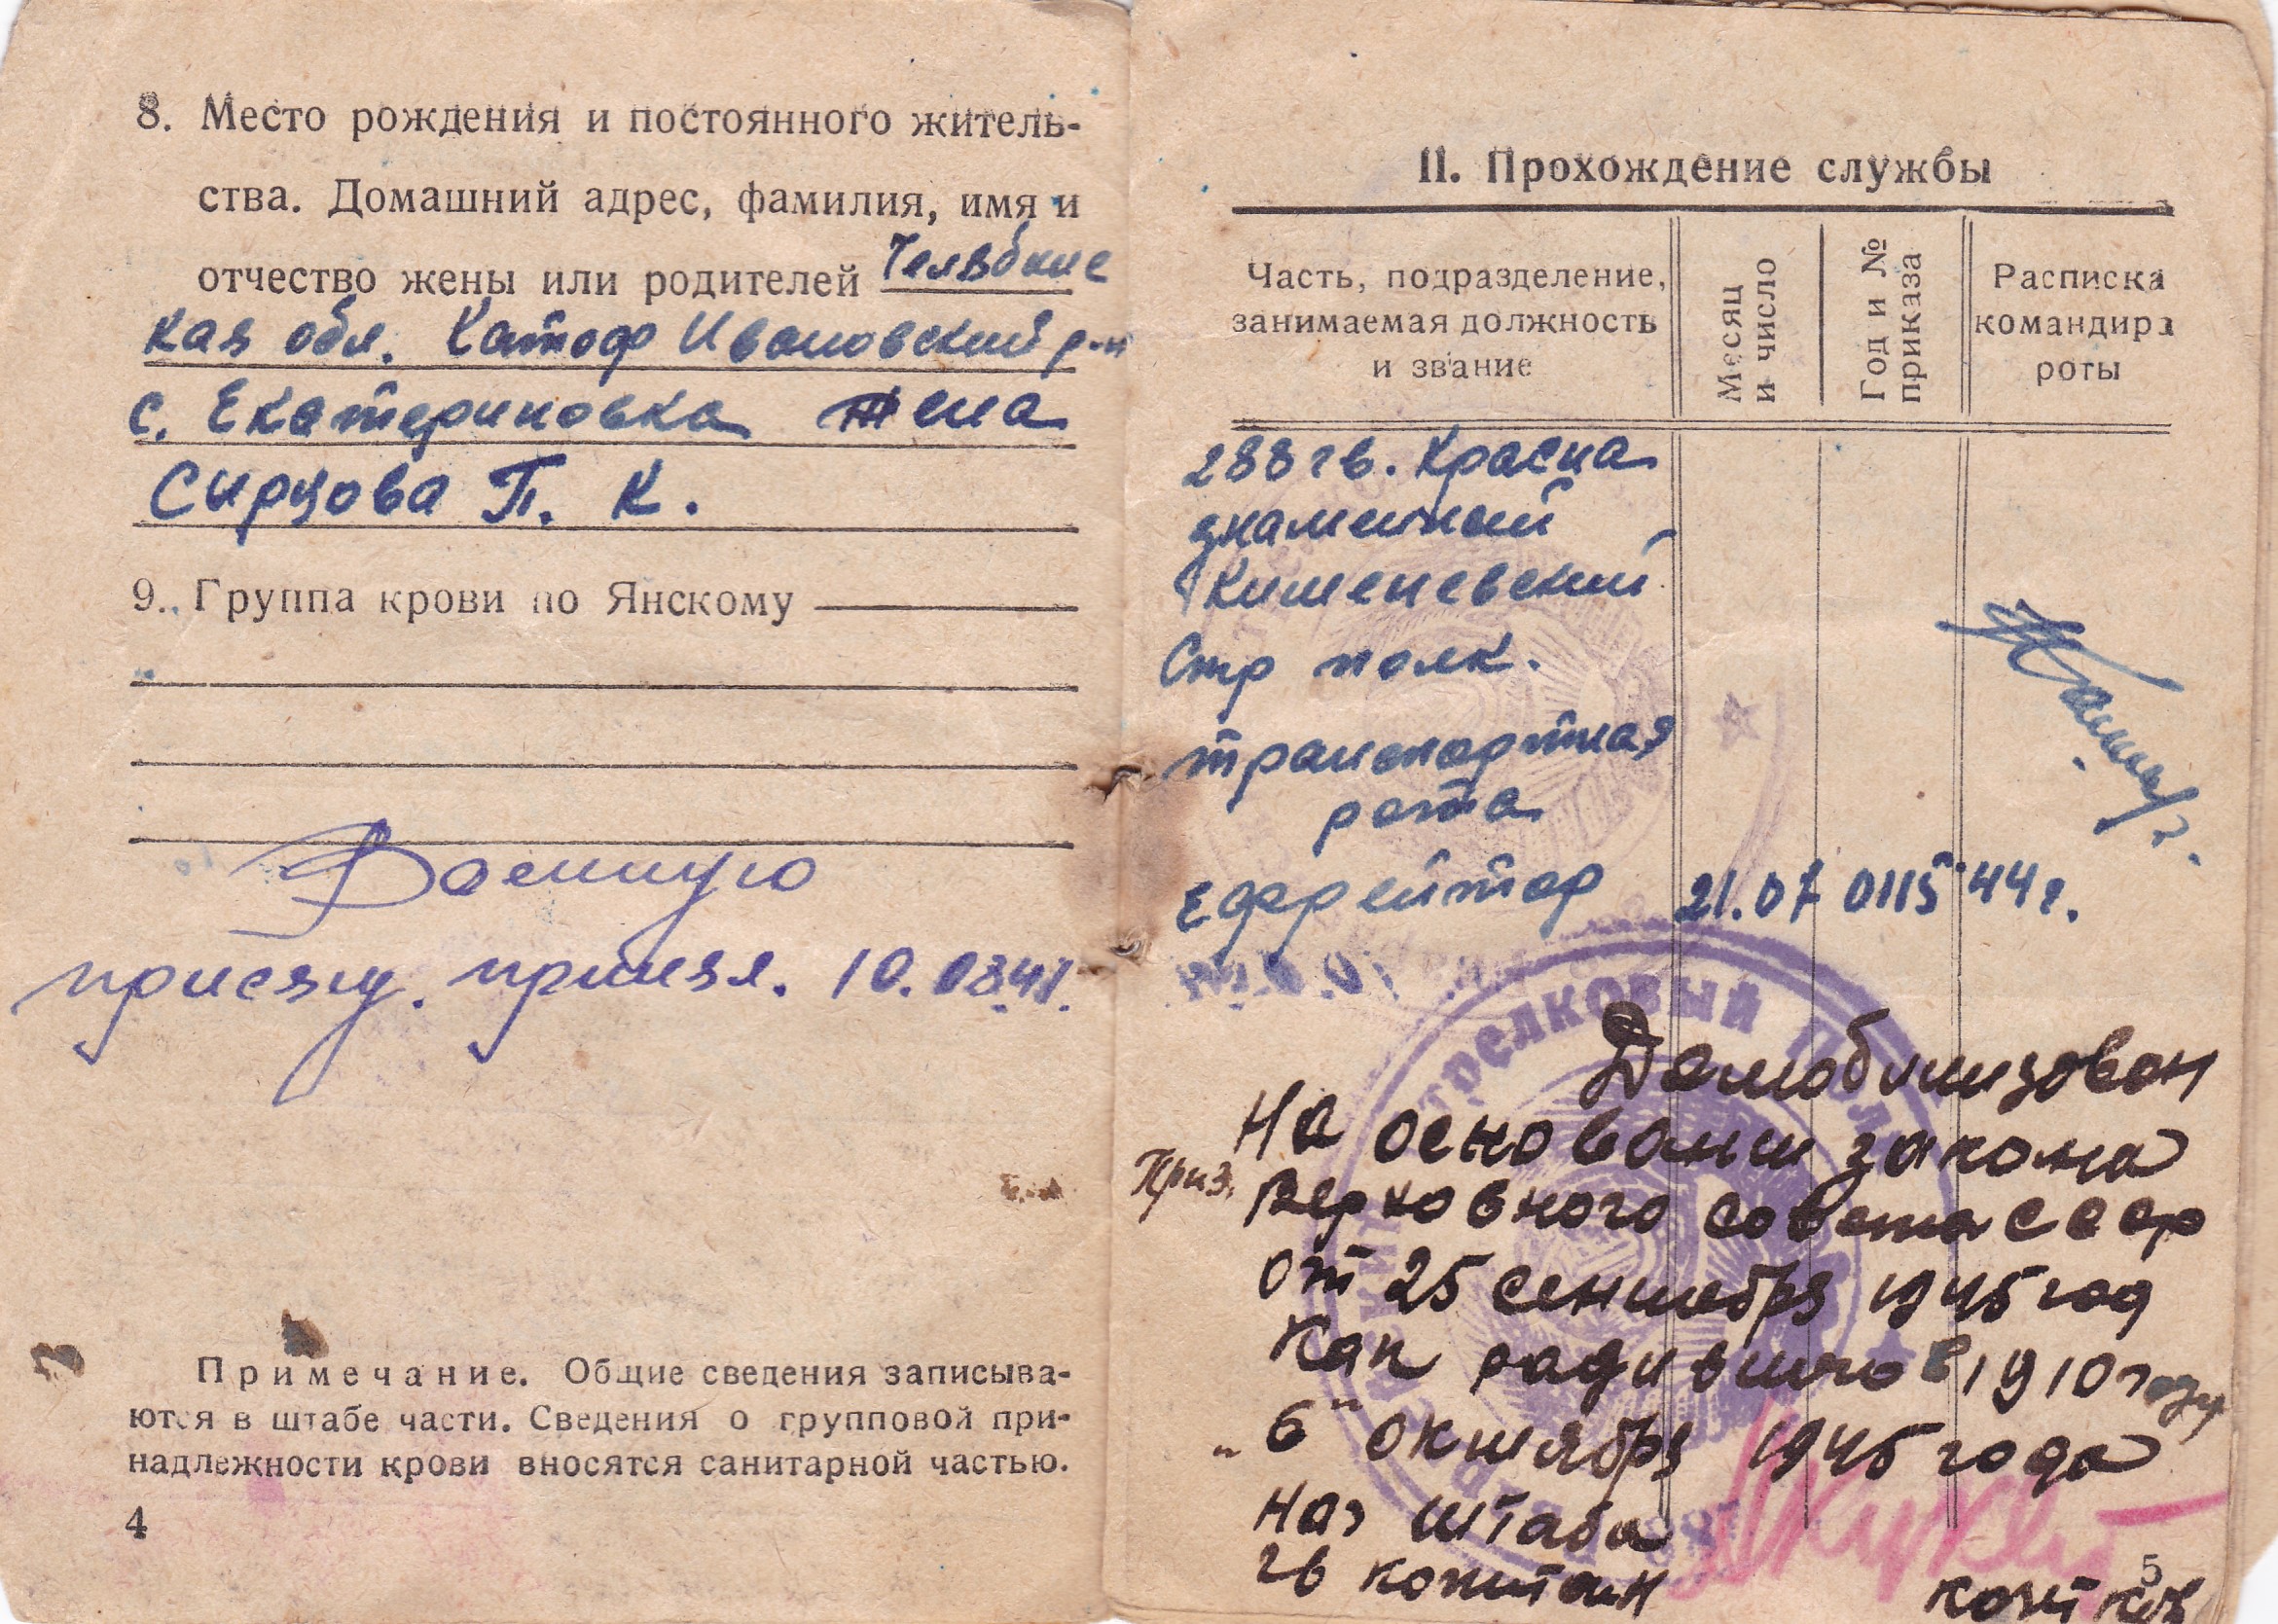 8. Место рождения и постоянного житель-
ства. Домашний адрес, фамилия, имя и
отчество жены или родителей Челябинс
кая обл. Катаф Ивановский р-н
с. Екатериновка жена
Сирцова П. К.
9. Группа крови по Янскому
Военную
присягу. принял. 10.0841.
Примечание. Общие сведения записыва-
ются в штабе части. Сведения о групповой при-
надлежности крови вносятся санитарной частью.
4
II. Прохождение службы
Часть, подразделение,
занимаемая должность
и звание
Месяц
и число
Год и №
приказа
Расписка
командира
роты
288 гв. Красна
знаменный
Кишеневский
Стр полк.
транспортная
рота
Ефрейтор 21.07 0115 44 г.
стрелковый полк
Демобилизован
На основании закона
Приз. Верховного совета СССР
от 25 сентября 1945 год
Как радившго в 1910 году
"6" октября 1945 года
Нач штаба
гв капитан
5